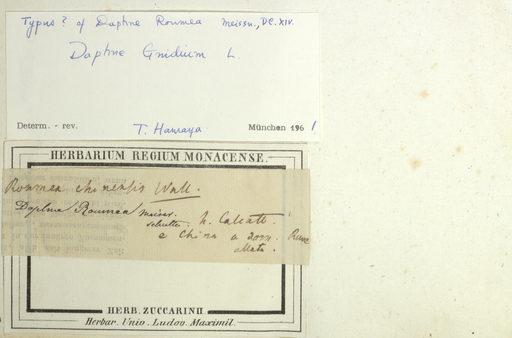 Typus? of Daphne Roumea Meissn., DC. XIV.
Daphne Gnidium L.
Determ. - rev.
T. Hamaya
München 1961
HERBARIUM REGIUM MONACENSE.
Roumea chinensis Wall.
Daphne Roumea Meissn.
h. Calcutt.
e China a Dom.
allata.
HERB. ZUCCARINII
Herbar. Univ. Ludov. Maximil.